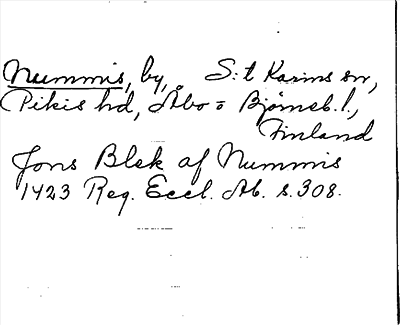 Nummis, by, S:t Karins sn,
Pikis hd, Åbo = Björneb. l.,
Finland
Jons Blek af Nummis
1423 Reg. Eccl. Ab. s. 308.